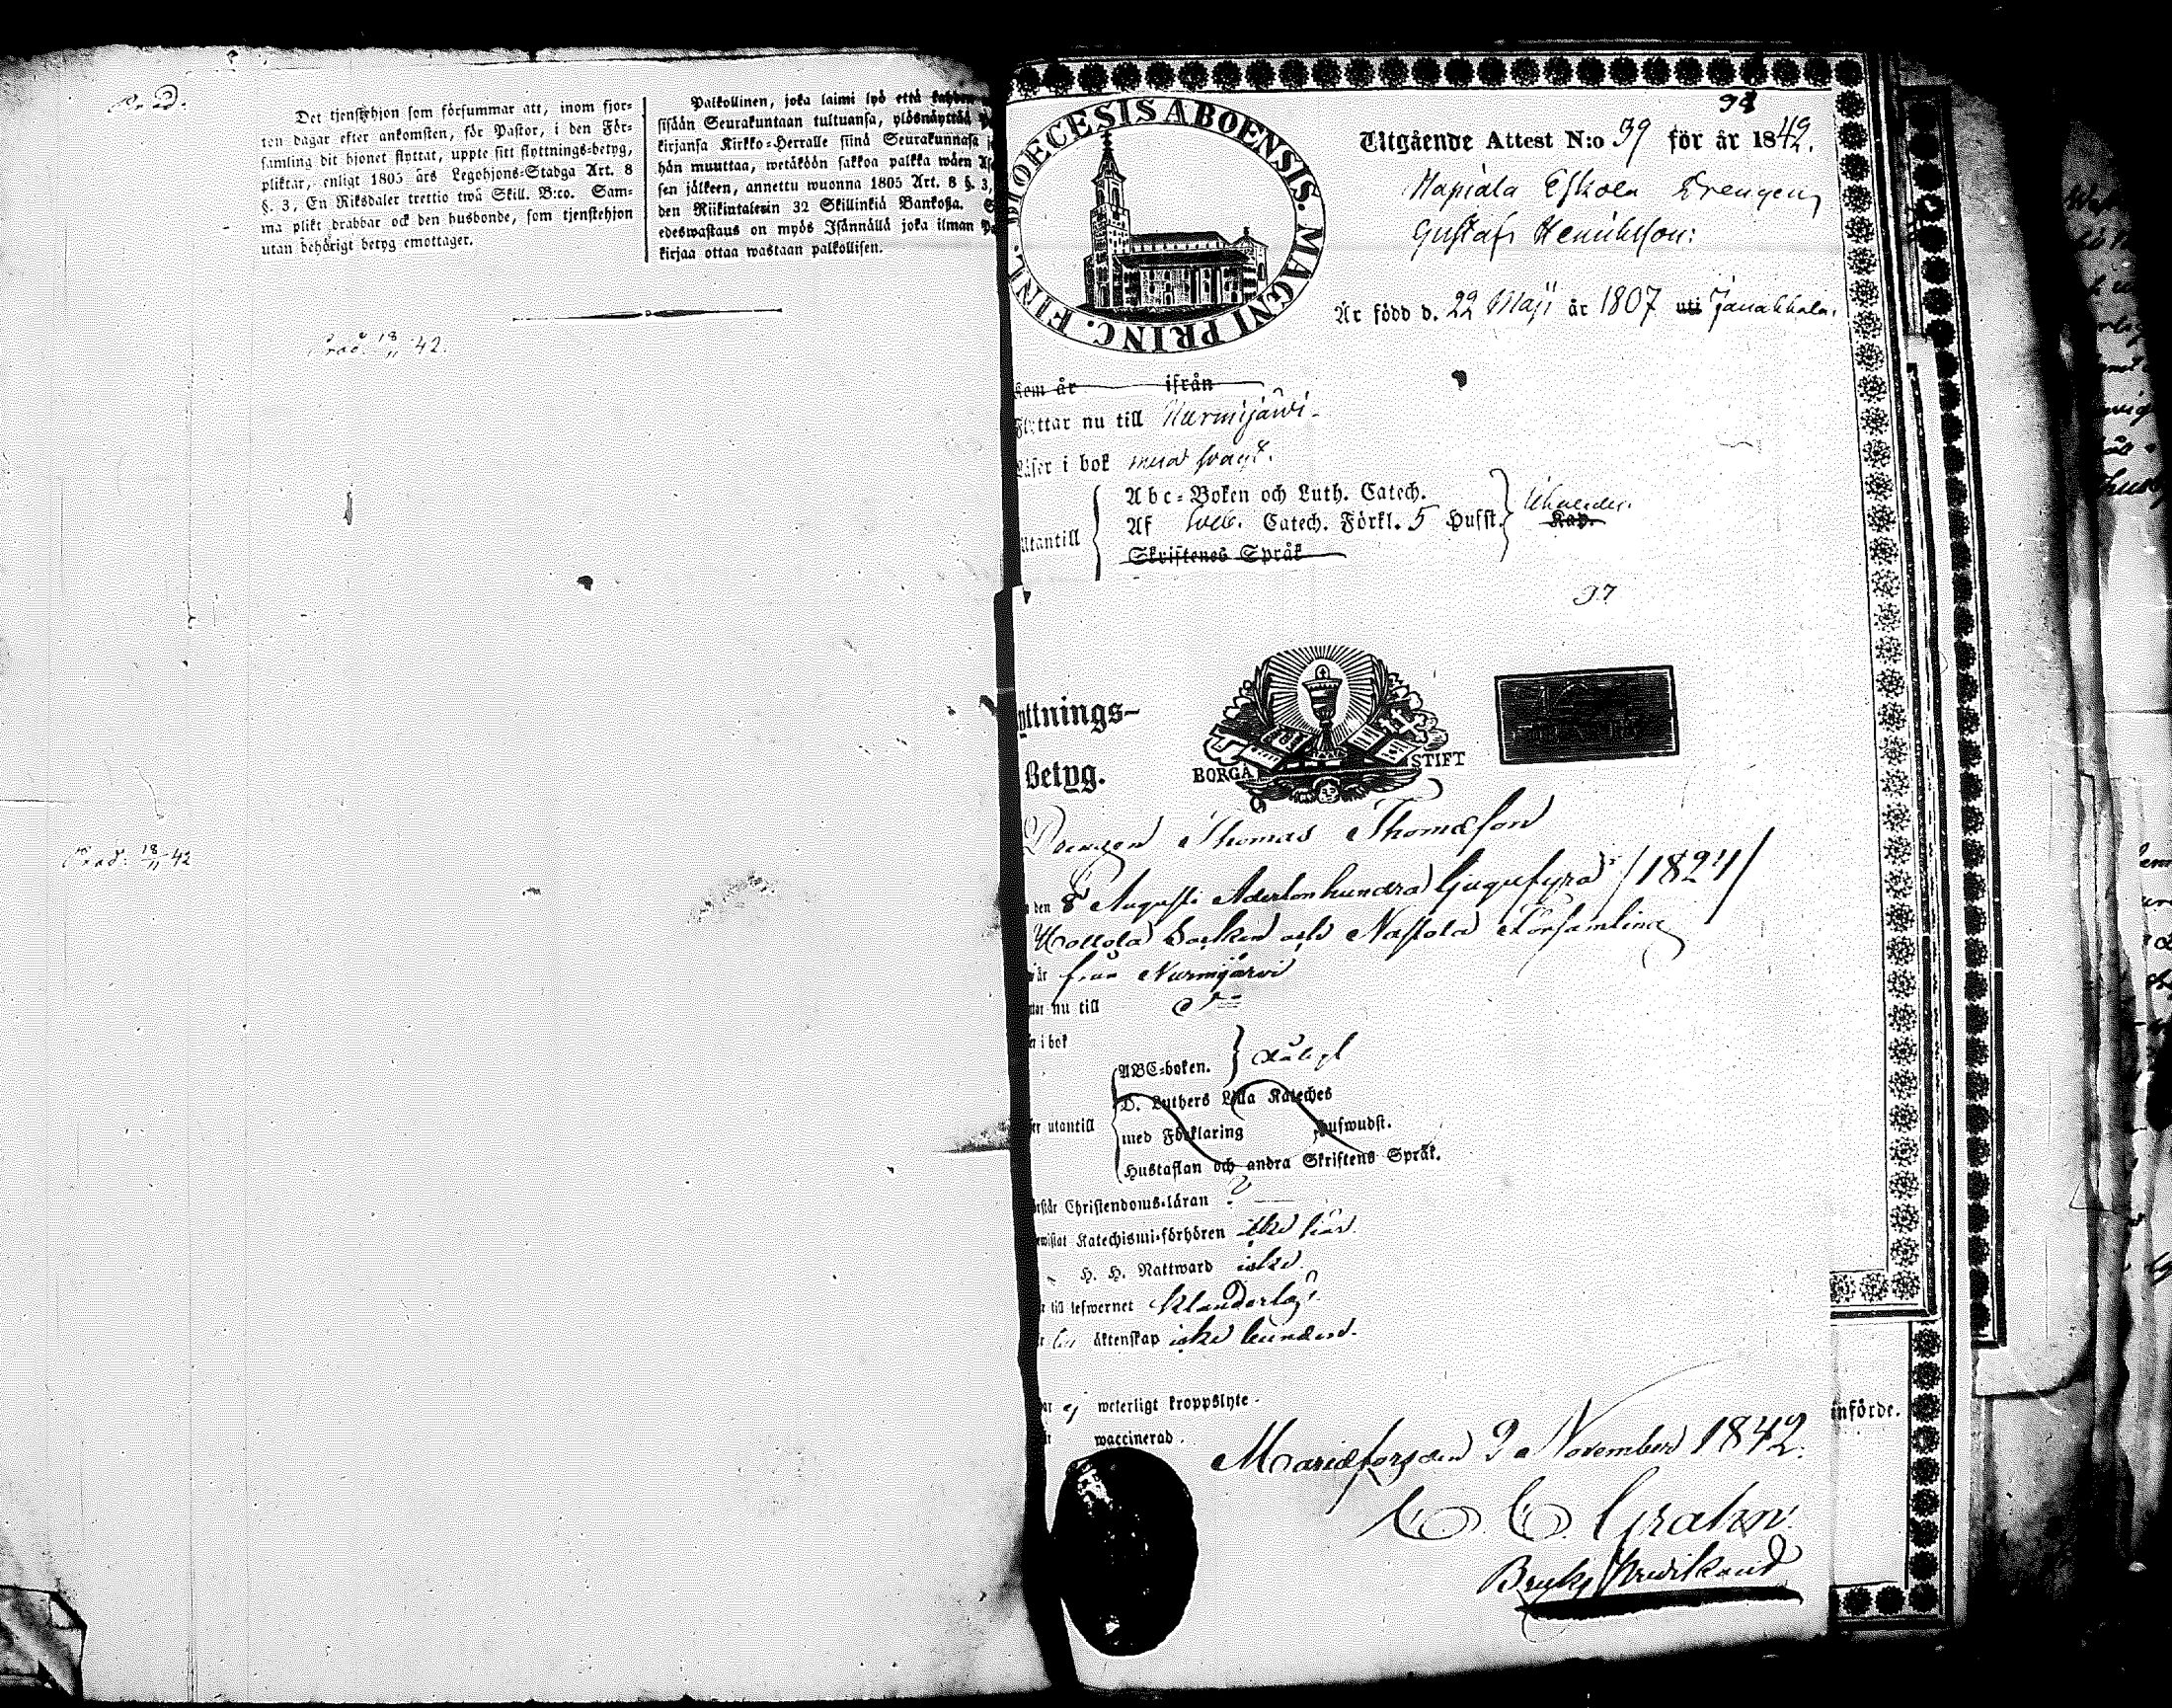 Det tjenstehjon som försummar att, inom fjor-
ton dagar efter ankomsten, för Pastor, i den För-
samling dit hjonet flyttat, uppte sitt flyttnings-betyg,
pliktar, enligt 1805 års Legohjons-Stadga Art. 8
§. 3, En Riksdaler trettio twå Skill. B:co. Sam-
ma plikt drabbar ock den husbonde, som tjenstehjon
utan behörigt betyg emottager.
Palkollinen, joka laimi lyö että
sisään Seurakuntaan tultuansa, ylösnäyttää
kirjansa Kirkko-Herralle siinä Seurakunnasa
hän muuttaa, wetäköön sakkoa palkka wäen
sen jälkeen, annettu wuonna 1805 Art. 8 §. 3,
den Riikintalerin 32 Skillinkiä Bankosa.
edeswastaus on myös Isännällä joka ilman
kirjaa ottaa wastaan palkollisen.
18/11 42.
18/11 42
DIOECESIS ABOENSIS. MAGNI PRINC. FINL.
Utgående Attest N:o 39 för år 1842.
Eskola Drengen
Gustaf Henriksson:
Är född d. 22 Maji år 1807 uti Janakkala.
kom år ifrån
Flyttar nu till Nurmijärvi.
Läser i bok svagt.
Abc-Boken och Luth. Catech.
Af Catech. Förkl. 5 Hufst.
Kap.
Utantill
Skriftenes Språk
37
yttnings-
Betyg.
BORGÅ STIFT
Drengen Thomas Thomasson
den 8 Augusti Adertonhundra tjugufyra /1824/
Hollola Socken och Nastola Församling
år från Nurmijärvi
nu till
i bok
ABC-boken.
D. Luthers Lilla Kateches
utantill
med Förklaring Hufwudst.
Hustaflan och andra Skriftens Språk.
Christendoms-läran
Katechismi-förhören icke här.
H. H. Nattward icke
till lefwernet klanderlös.
äktenskap icke bunden.
ej weterligt kroppslyte.
waccinerad.
nförde.
Mariefors den 2 November 1842.
C. C. Grahn
Bruks Predikant